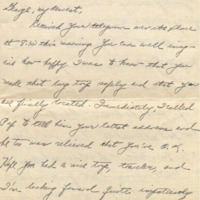 my dearest,
Received your telegram
at 8:30 this morning. You can well imag-
ine how happy I was to know that you
made that long trip safely and that you
are finally located. Immediately I called
Pop to tell him your latest address and
he too was relieved that you're O.K.
Hope you had a nice trip, teacher, and
I'm looking forward quite impatiently